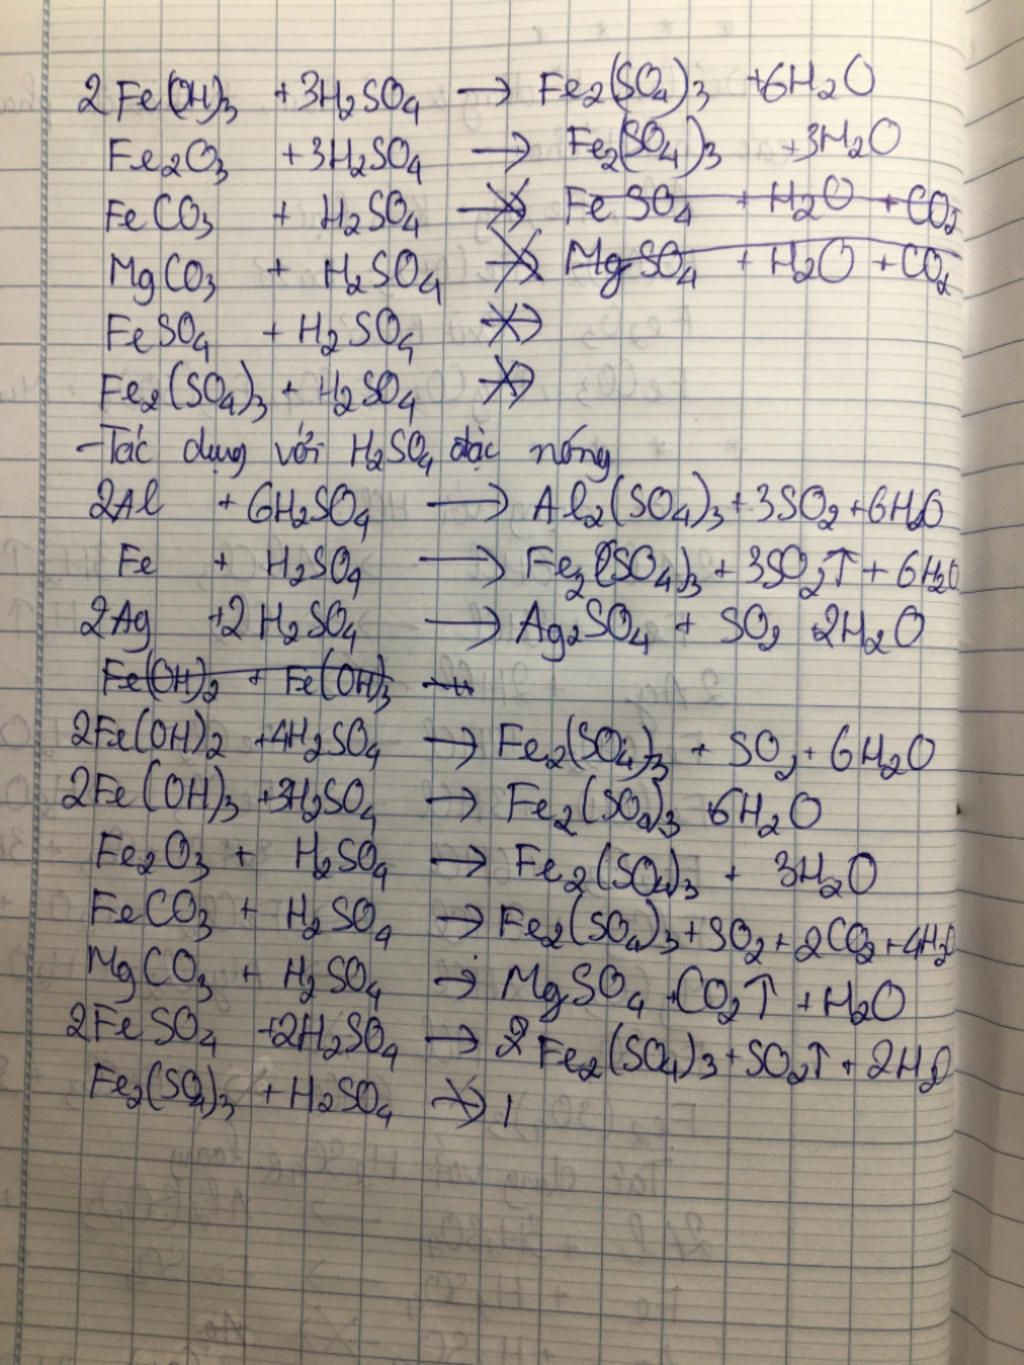 2Fe(OH)3 + 3H2SO4 → Fe2(SO4)3 + 6H2O
Fe2O3 + 3H2SO4 → Fe2(SO4)3 + 3H2O
FeCO3 + H2SO4 ↛ FeSO4 + H2O + CO2
MgCO3 + H2SO4 ↛ MgSO4 + H2O + CO2
FeSO4 + H2SO4 ↛
Fe2(SO4)3 + H2SO4 ↛
- Tác dụng với H2SO4 đặc nóng
2Al + 6H2SO4 → Al2(SO4)3 + 3SO2 + 6H2O
Fe + H2SO4 → Fe2(SO4)3 + 3SO2↑ + 6H2O
2Ag + 2H2SO4 → Ag2SO4 + SO2 2H2O
Fe(OH)2 + Fe(OH)3
2Fe(OH)2 + 4H2SO4 → Fe2(SO4)3 + SO2 + 6H2O
2Fe(OH)3 + 3H2SO4 → Fe2(SO4)3 6H2O
Fe2O3 + H2SO4 → Fe2(SO4)3 + 3H2O
FeCO3 + H2SO4 → Fe2(SO4)3 + SO2 + 2CO2 + 4H2O
MgCO3 + H2SO4 → MgSO4 + CO2↑ + H2O
2FeSO4 + 2H2SO4 → 2Fe2(SO4)3 + SO2↑ + 2H2O
Fe2(SO4)3 + H2SO4 ↛